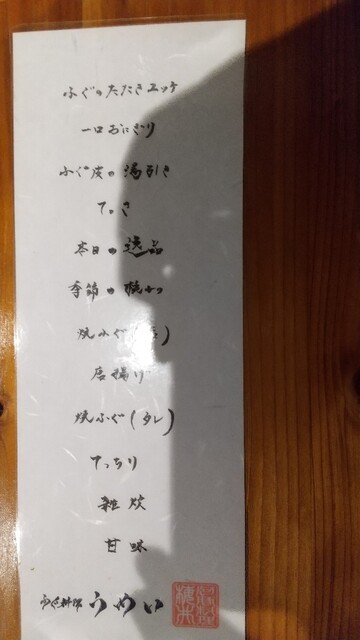 ふぐのたたきユッケ
一口おにぎり
ふぐ皮の湯引き
てっさ
本日の逸品
季節の椀もの
焼ふぐ( )
唐揚げ
焼ふぐ(タレ)
てっちり
雑炊
甘味
うめい